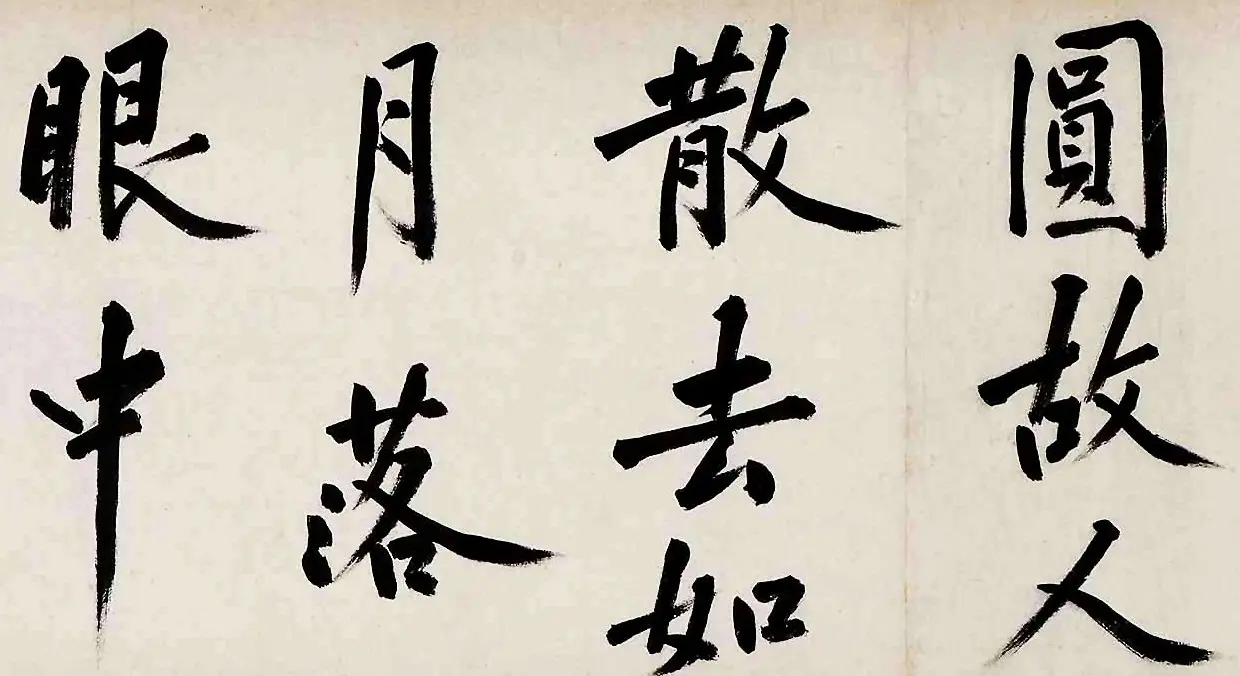 圓故人
散去如
月落
眼中